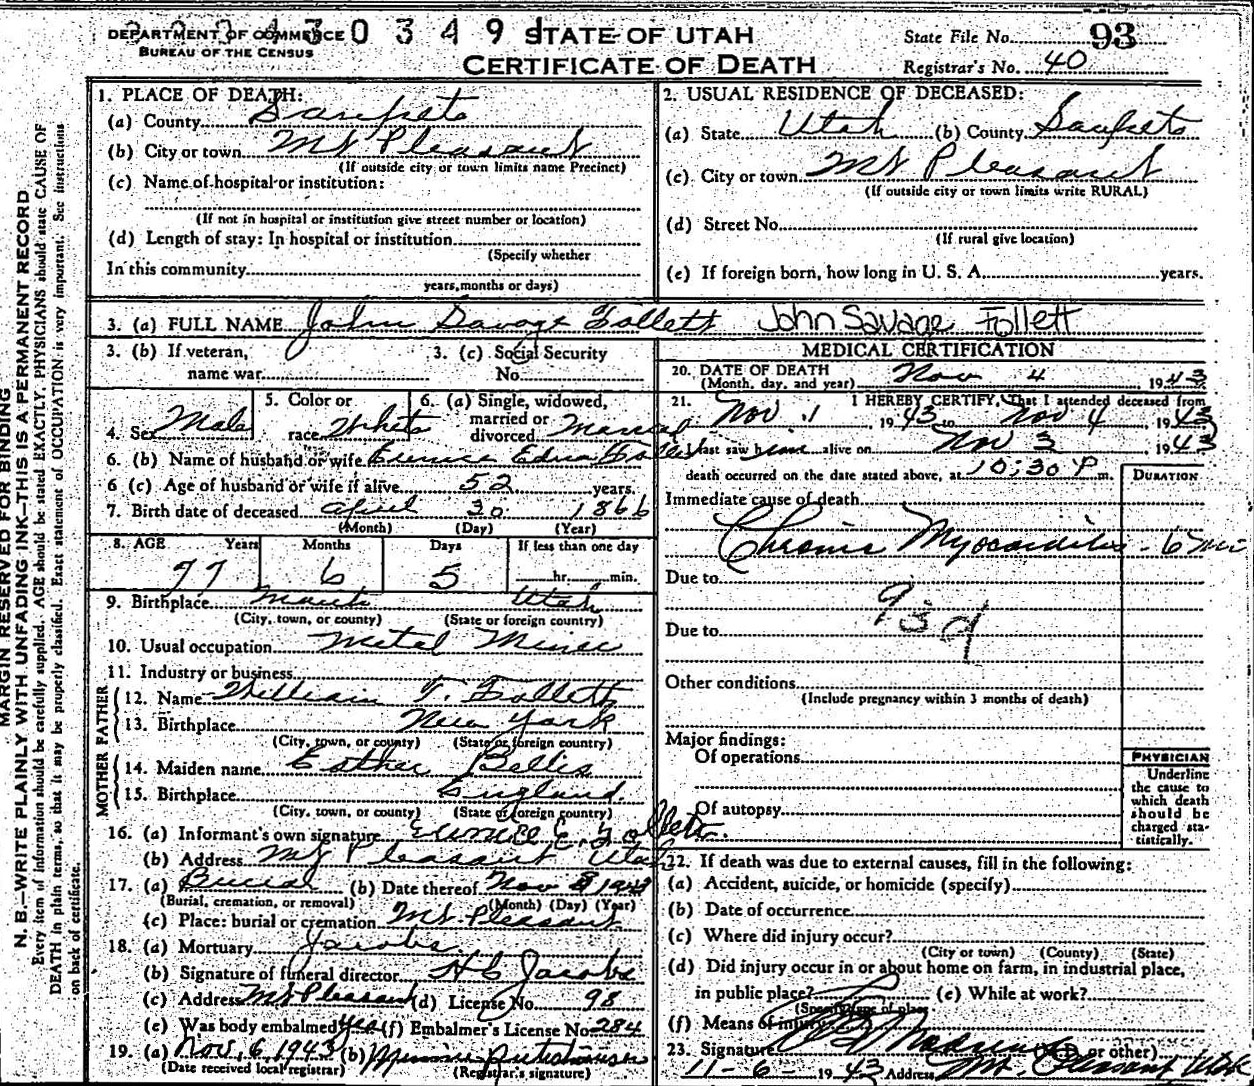 DEPARTMENT OF COMMERCE
BUREAU OF THE CENSUS
0 3 4 9
STATE OF UTAH
CERTIFICATE OF DEATH
State File No. 93
Registrar's No. 40
MARGIN RESERVED FOR BINDING
N. B.—WRITE PLAINLY WITH UNFADING INK—THIS IS A PERMANENT RECORD
Every item of information should be carefully supplied. AGE should be stated EXACTLY. PHYSICIANS should state CAUSE OF
DEATH in plain terms, so that it may be properly classified. Exact statement of OCCUPATION is very important. See instructions
on back of certificate.
1. PLACE OF DEATH:
(a) County Sanpete
(b) City or town Mt Pleasant
(If outside city or town limits name Precinct)
(c) Name of hospital or institution:
(If not in hospital or institution give street number or location)
(d) Length of stay: In hospital or institution
(Specify whether
In this community
years, months or days)
2. USUAL RESIDENCE OF DECEASED:
(a) State Utah (b) County Sanpete
(c) City or town Mt Pleasant
(If outside city or town limits write RURAL)
(d) Street No.
(If rural give location)
(e) If foreign born, how long in U. S. A. years.
3. (a) FULL NAME John Savage Follett John Savage Follett
3. (b) If veteran, 3. (c) Social Security
name war No.
4. Sex Male 5. Color or race White 6. (a) Single, widowed, married or divorced Married
6. (b) Name of husband or wife Eunice Edna Follett
6 (c) Age of husband or wife if alive 52 years.
7. Birth date of deceased April 30 1866
(Month) (Day) (Year)
8. AGE Years Months Days If less than one day
77 6 5 hr. min.
9. Birthplace Utah
(City, town, or county) (State or foreign country)
10. Usual occupation Metal Miner
11. Industry or business
FATHER
12. Name William T. Follett
13. Birthplace New York
(City, town, or county) (State or foreign country)
MOTHER
14. Maiden name Esther Bellis
15. Birthplace England.
(City, town, or county) (State or foreign country)
16. (a) Informant's own signature Eunice E. Follett.
(b) Address Mt Pleasant Utah
17. (a) Burial (b) Date thereof Nov 8 1943
(Burial, cremation, or removal) (Month) (Day) (Year)
(c) Place: burial or cremation Mt. Pleasant
18. (a) Mortuary Jacobs
(b) Signature of funeral director H C Jacobs
(c) Address Mt Pleasant (d) License No. 98
(e) Was body embalmed yes (f) Embalmer's License No. 284
19. (a) Nov. 6, 1943 (b) Minnie
(Date received local registrar) (Registrar's signature)
MEDICAL CERTIFICATION
20. DATE OF DEATH Nov 4 1943
(Month, day, and year)
21. I HEREBY CERTIFY, That I attended deceased from
Nov 1, 1943 to Nov 4, 1943
I last saw him alive on Nov 3, 1943
death occurred on the date stated above, at 10:30 P m.
DURATION
Immediate cause of death
Chronic Myocarditis - 6
Due to
93d
Due to
Other conditions
(Include pregnancy within 3 months of death)
Major findings:
Of operations
Of autopsy
PHYSICIAN
Underline
the cause to
which death
should be
charged sta-
tistically.
22. If death was due to external causes, fill in the following:
(a) Accident, suicide, or homicide (specify)
(b) Date of occurrence
(c) Where did injury occur?
(City or town) (County) (State)
(d) Did injury occur in or about home on farm, in industrial place,
in public place? (e) While at work?
(Specify type of place)
(f) Means of injury
23. Signature Madsen or other)
11-6-1943 Address Mt. Pleasant Utah